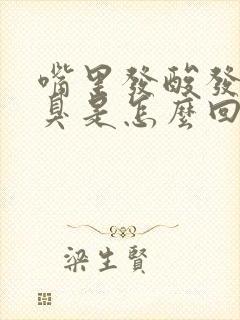 嘴里發酸發
臭是怎麼回
梁生賢